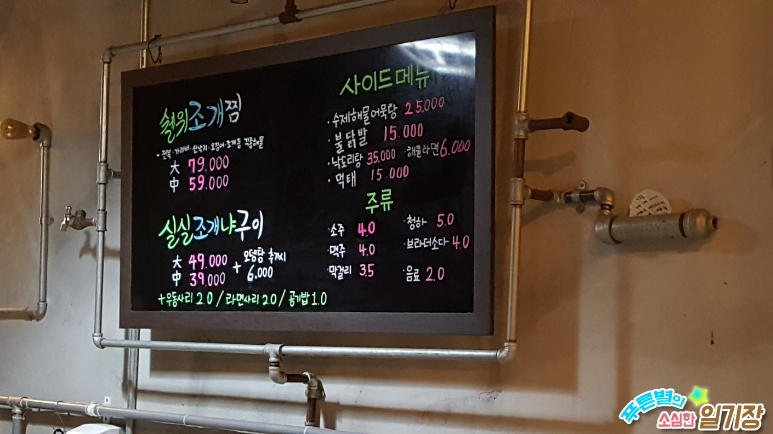 쉴위조개찜
- 전복·가리비·산낙지·오징어·조개등 각종해물
大 79.000
中 59.000
실실조개냐구이
大 49.000
中 39.000
+ 오뎅탕 추가시 6.000
+우동사리 2.0 / 라면사리 2.0 / 공기밥 1.0
사이드메뉴
·수제해물어묵탕 25.000
·불닭발 15.000
·낙도리탕 35.000 ·해물라면 6.000
·먹태 15.000
주류
·소주 4.0 ·청하 5.0
·맥주 4.0 ·브라더소다 4.0
·막걸리 3.5 ·음료 2.0
푸른별의
소심한 일기장